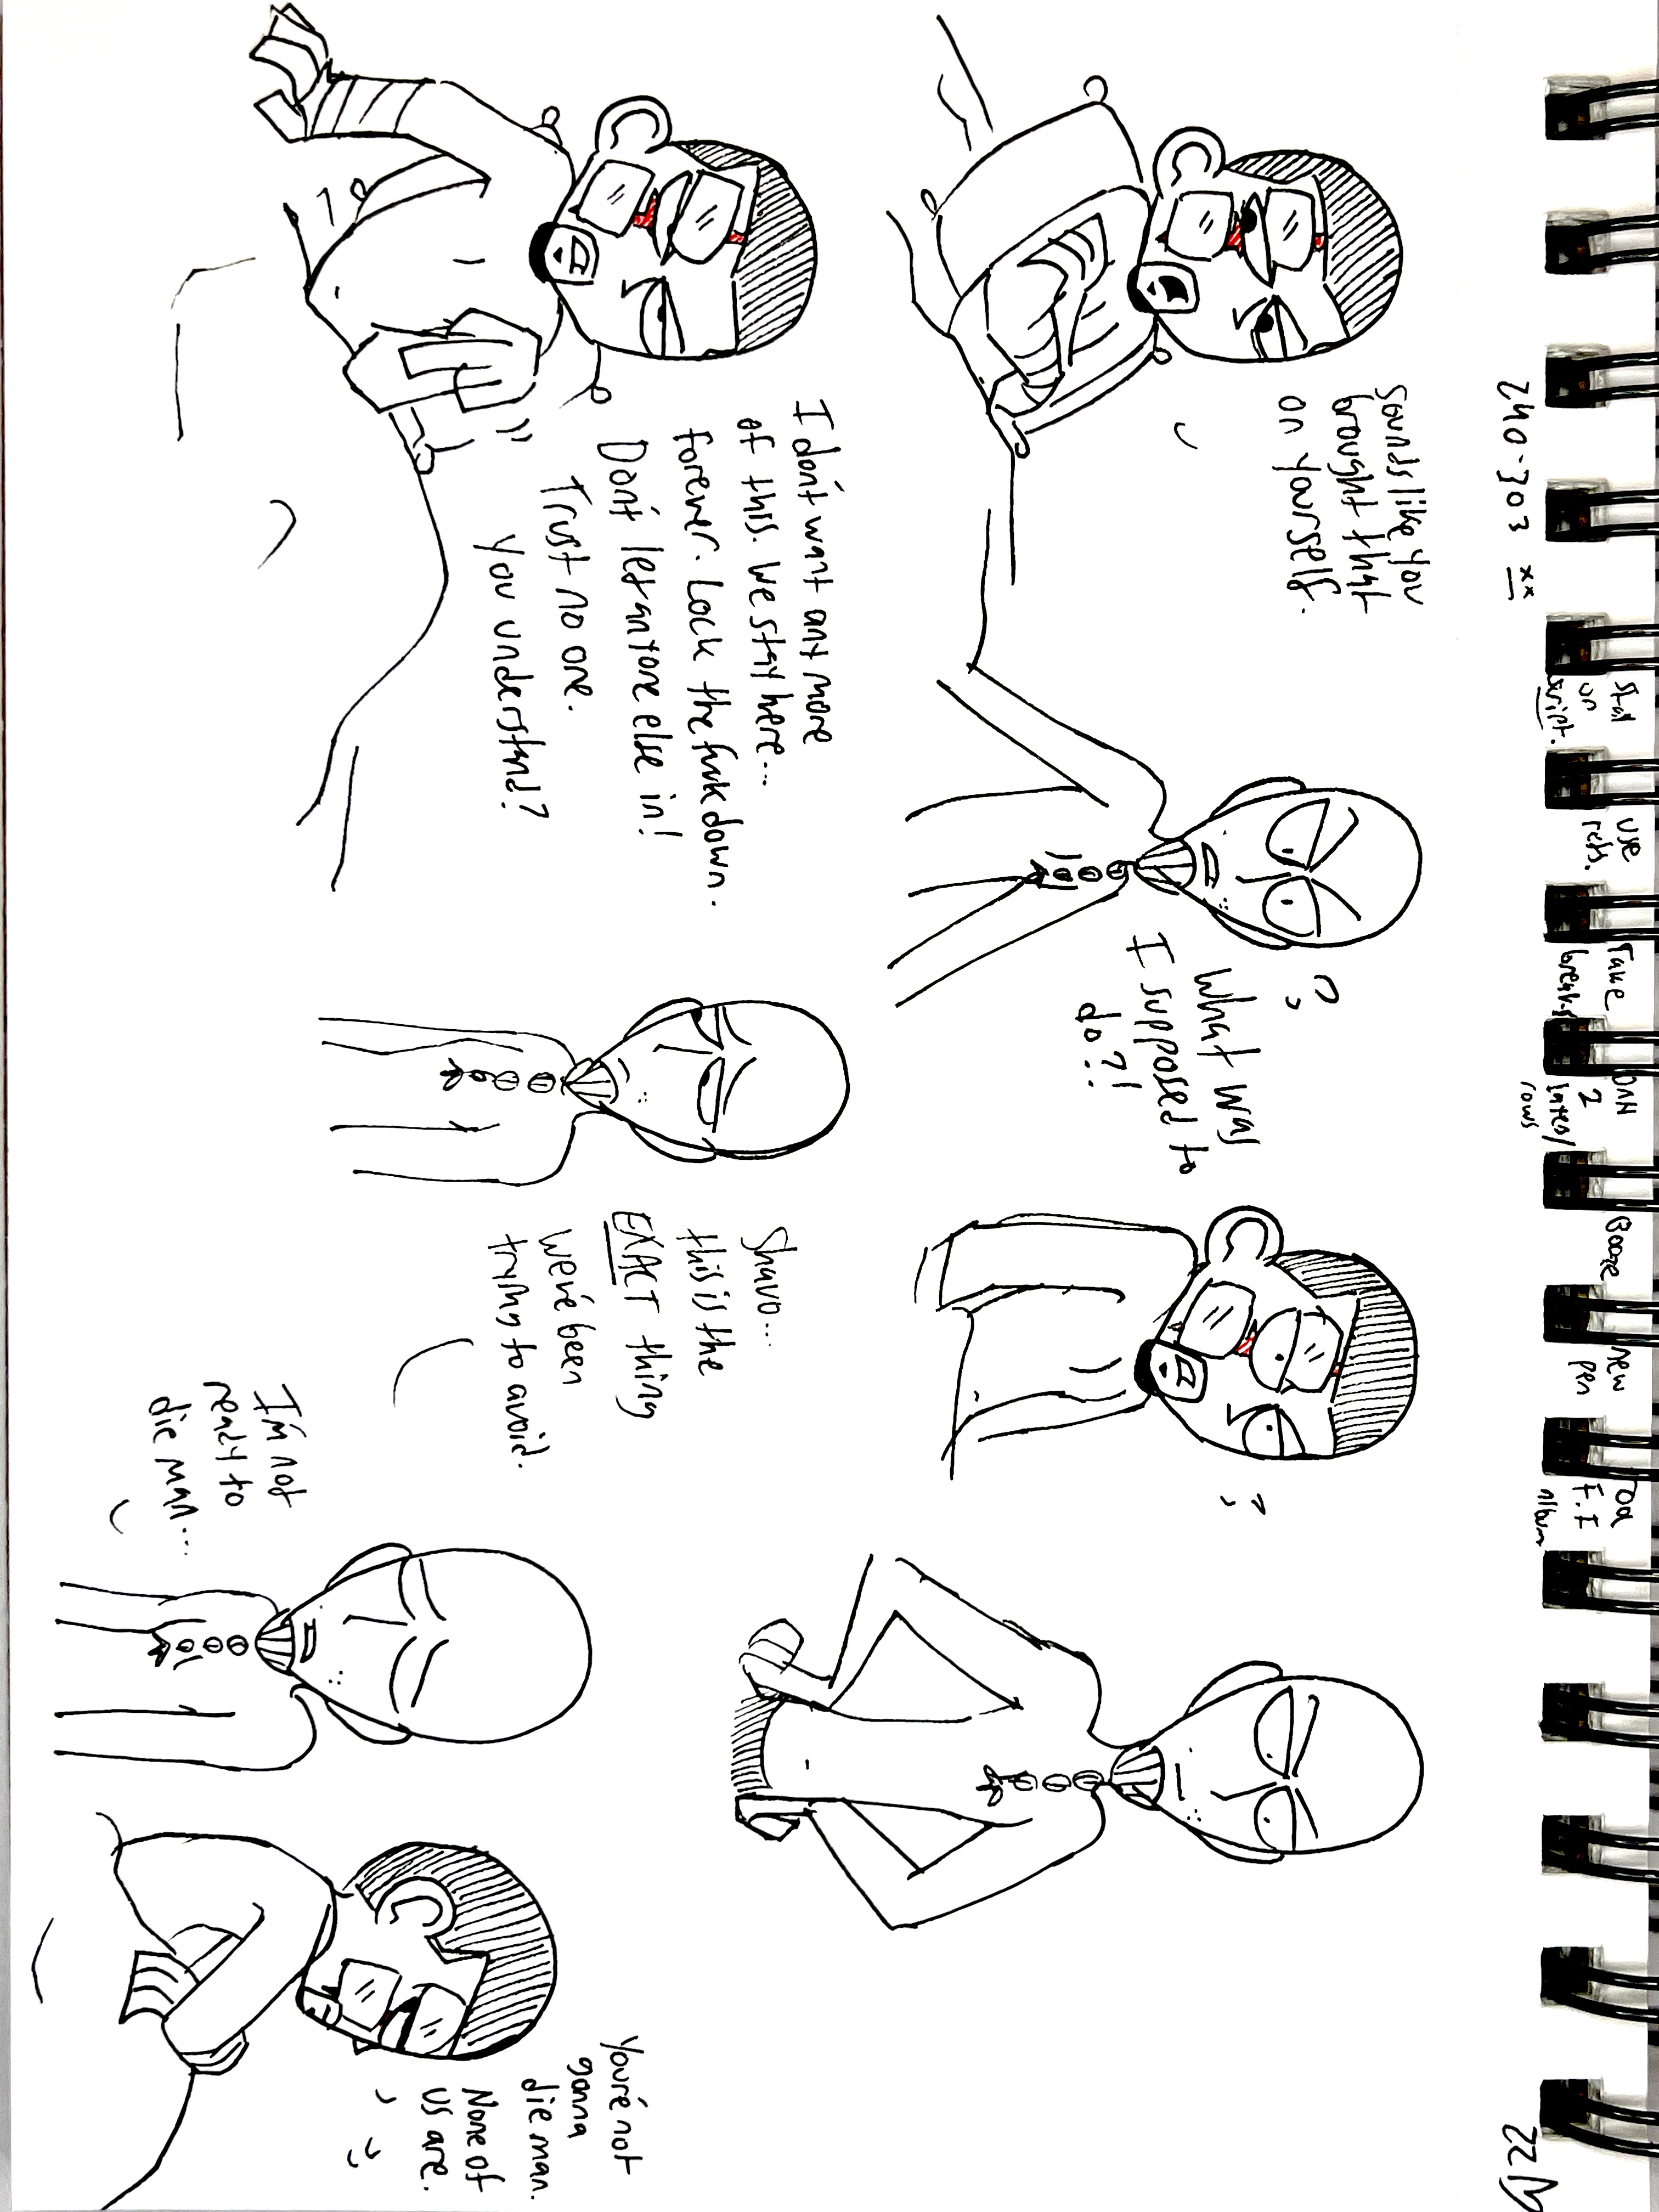 Stay
on
script.
Use
refs.
Take
breaks
2
layers/
rows
Booze
New
pen
F.I
Album
240-303 xx
22
Sounds like you
brought that
on yourself.
?
What was
I supposed to
do?!
?
I don't want any more
of this. We stay here...
forever. Lock the fuck down.
Don't let anyone else in!
Trust no one.
You understand?
Shavo...
this is the
EXACT thing
we've been
trying to avoid.
I'm not
ready to
die man...
You're not
gonna
die man.
None of
us are.